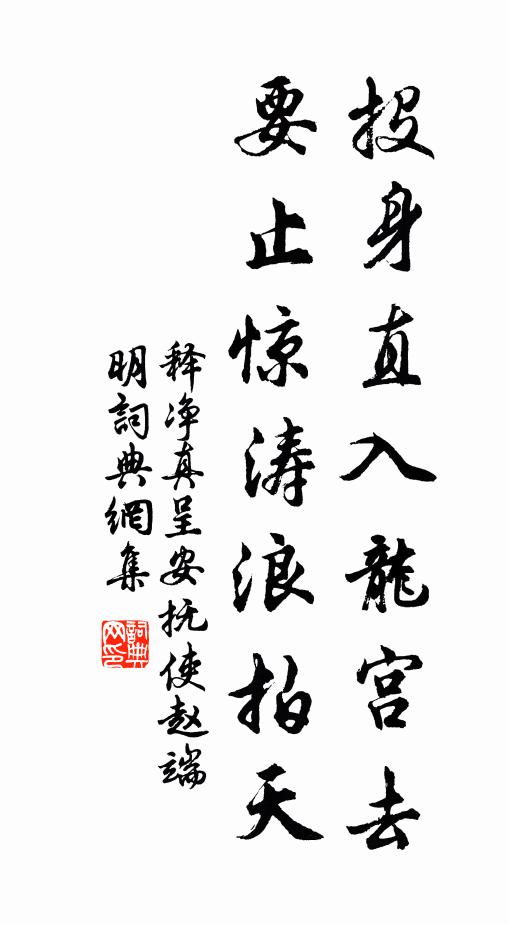 投身直入龍宫去
要止惊涛浪拍天
释净真呈安抚使赵端
明詞典網集
詞典
网印